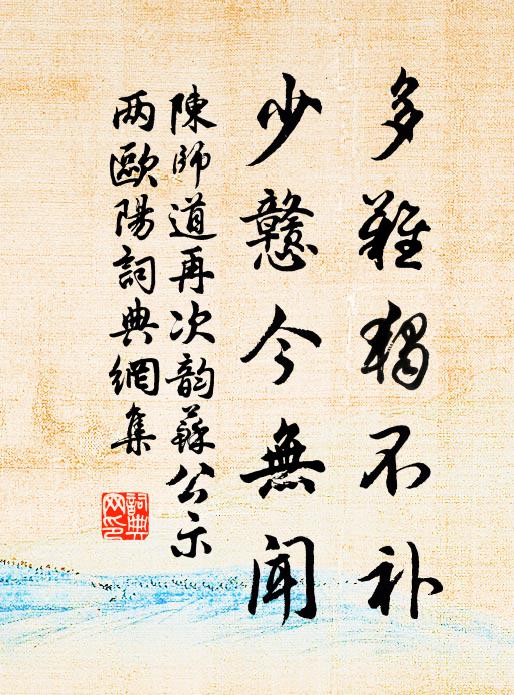 多難獨不补
少戇今無聞
陳師道再次韵蘇公示
两歐陽詞典網集
詞典
网印